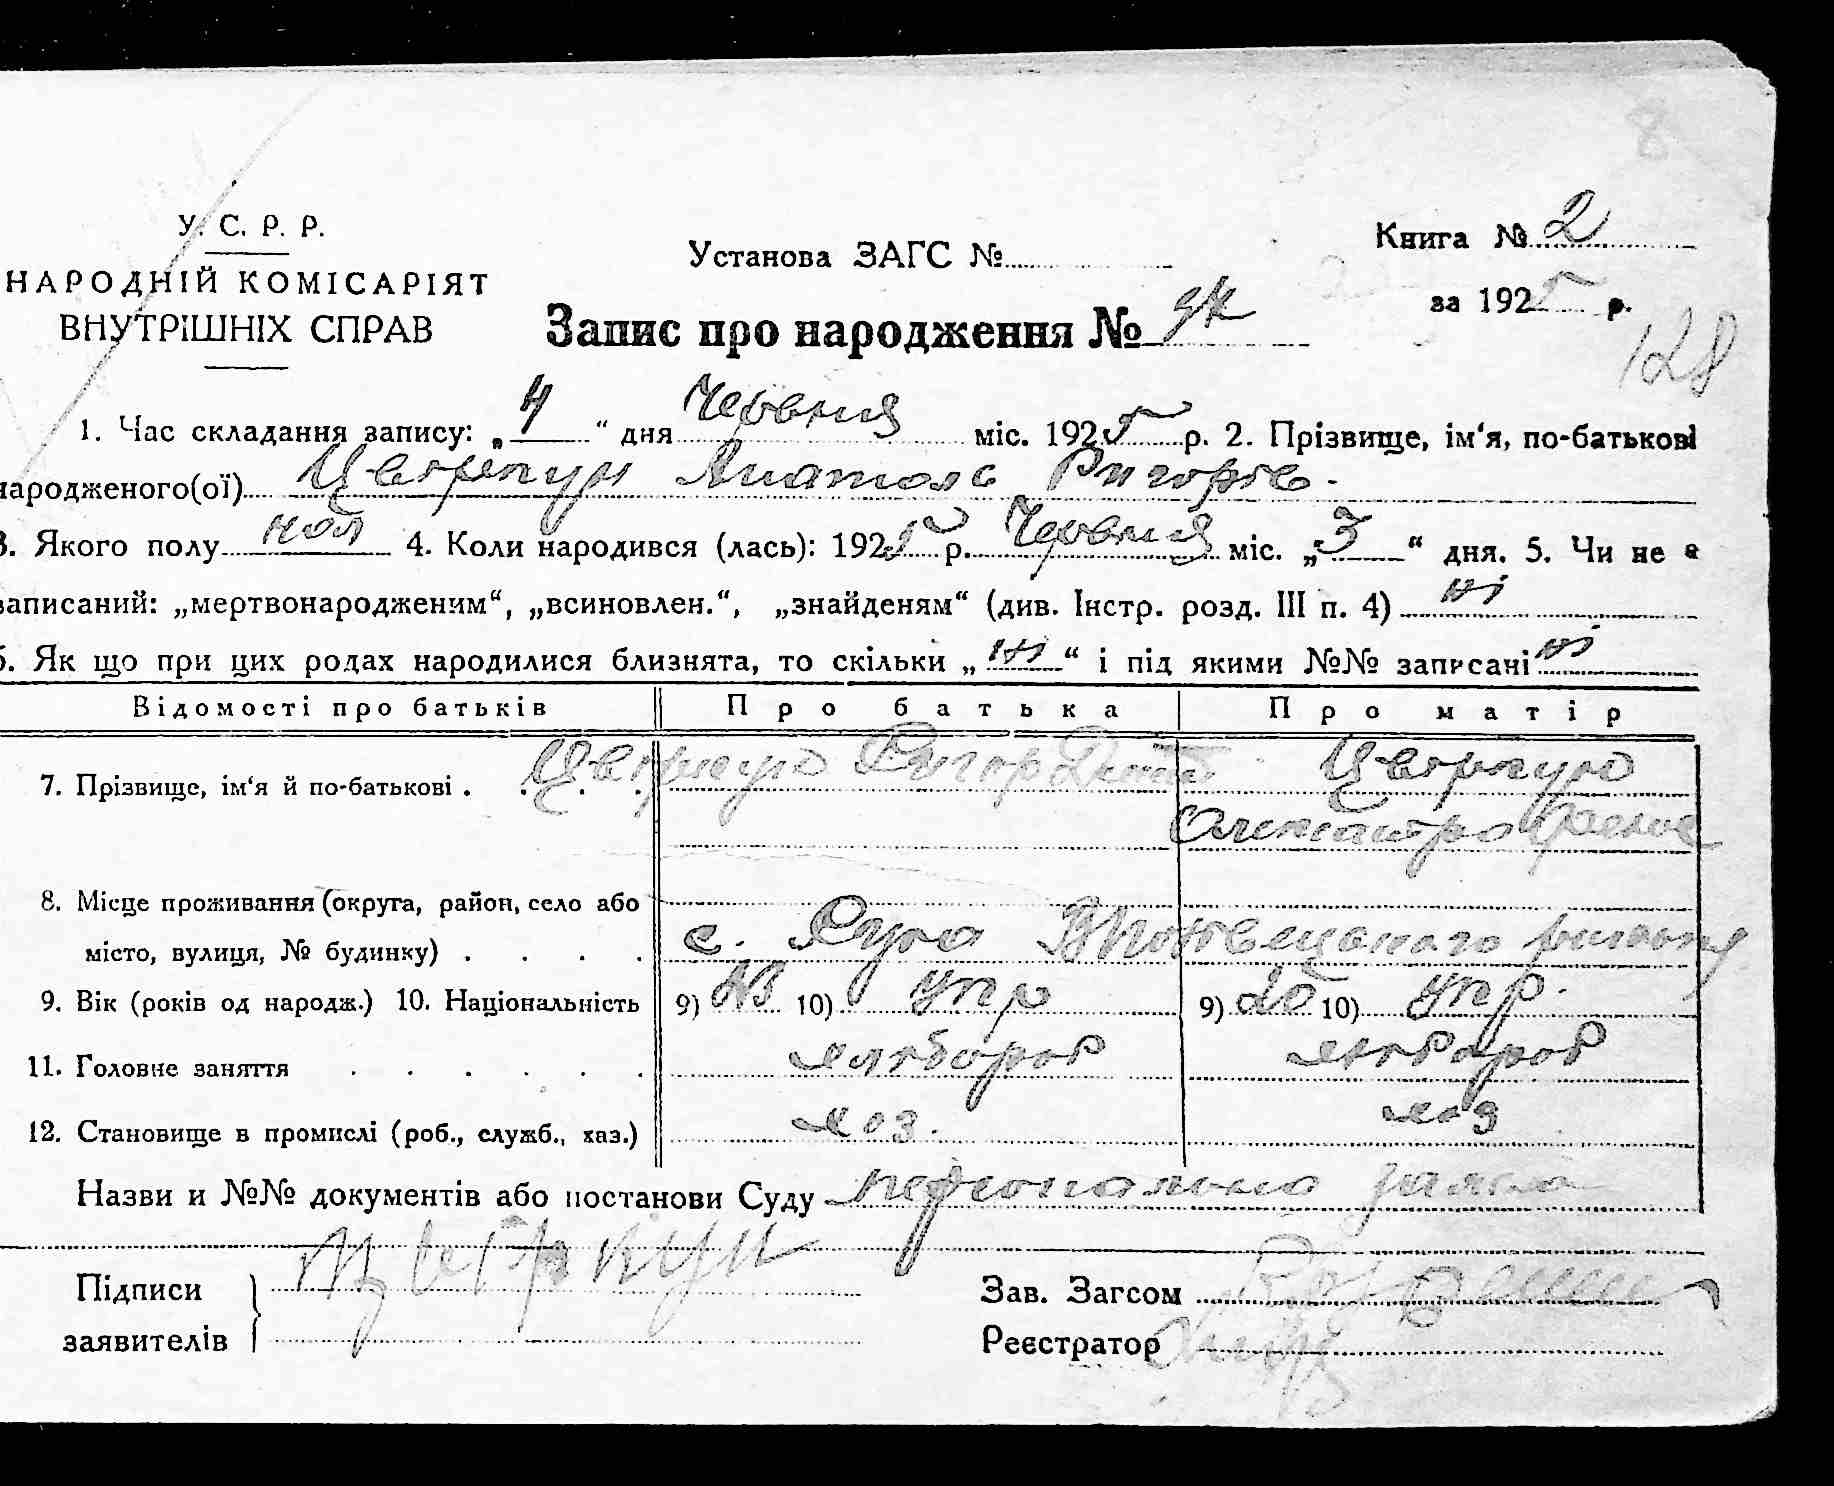 8
У. С. Р. Р.
НАРОДНІЙ КОМІСАРІЯТ
ВНУТРІШНІХ СПРАВ
Установа ЗАГС №
Книга № 2
за 1925 р.
Запис про народження №
128
1. Час складання запису: „4“ дня Червня міс. 1925 р. 2. Прізвище, ім‘я, по-батькові
народженого(ої) Цвіркун Анатоль Ригорів.
3. Якого полу чол 4. Коли народився (лась): 1925 р. Червня міс. „3“ дня. 5. Чи не є
записаний: „мертвонародженим“, „всиновлен.“, „знайденям“ (див. Інстр. розд. III п. 4) ні
6. Як що при цих родах народилися близнята, то скільки „ні“ і під якими №№ записані ні
Відомості про батьків Про батька Про матір
7. Прізвище, ім‘я й по-батькові . . . . Цвіркун Ригор Цвіркун
Олександра
8. Місце проживання (округа, район, село або
місто, вулиця, № будинку) . . . . с. Луга району
9. Вік (років од народж.) 10. Національність 9) 10) укр 9) 10) укр.
11. Головне заняття . . . . . . хлібороб хлібороб
12. Становище в промислі (роб., служб., хаз.) хоз. хоз
Назви и №№ документів або постанови Суду персональна заява
Підписи
заявителів
Цвіркун
Зав. Загсом
Реєстратор